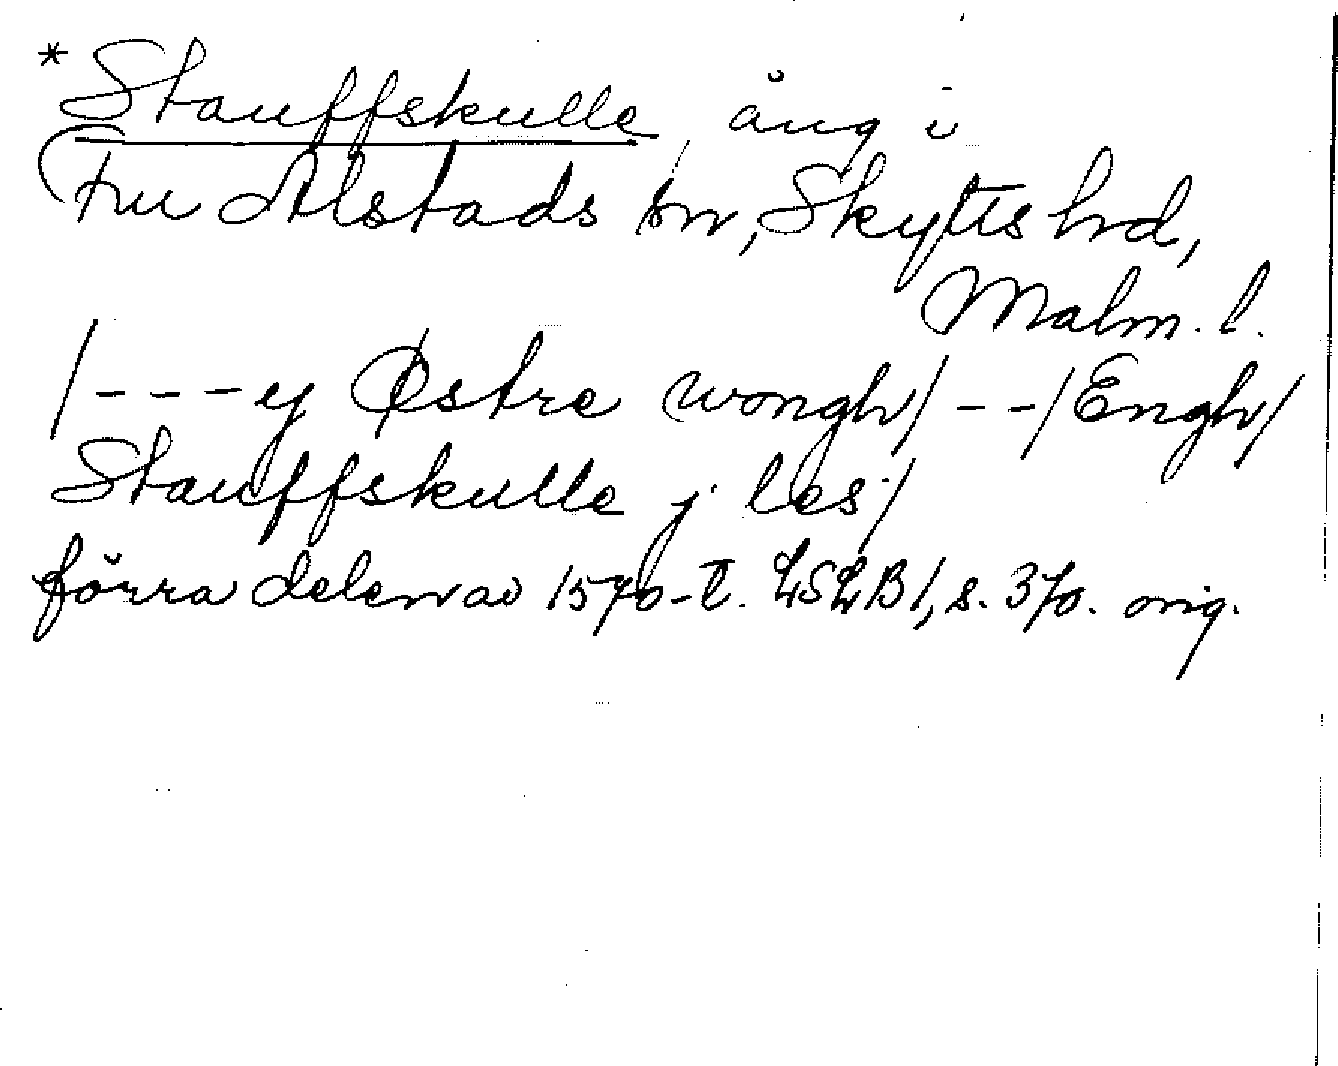 *Stauffskulle, äng i
Fru Alstads sn, Skytts hd,
Malm. l.
/---y Østre wongh/--/Engh/
Stauffskulle j les/
förra delen av 1570-t. LSLB 1, s. 370. orig.